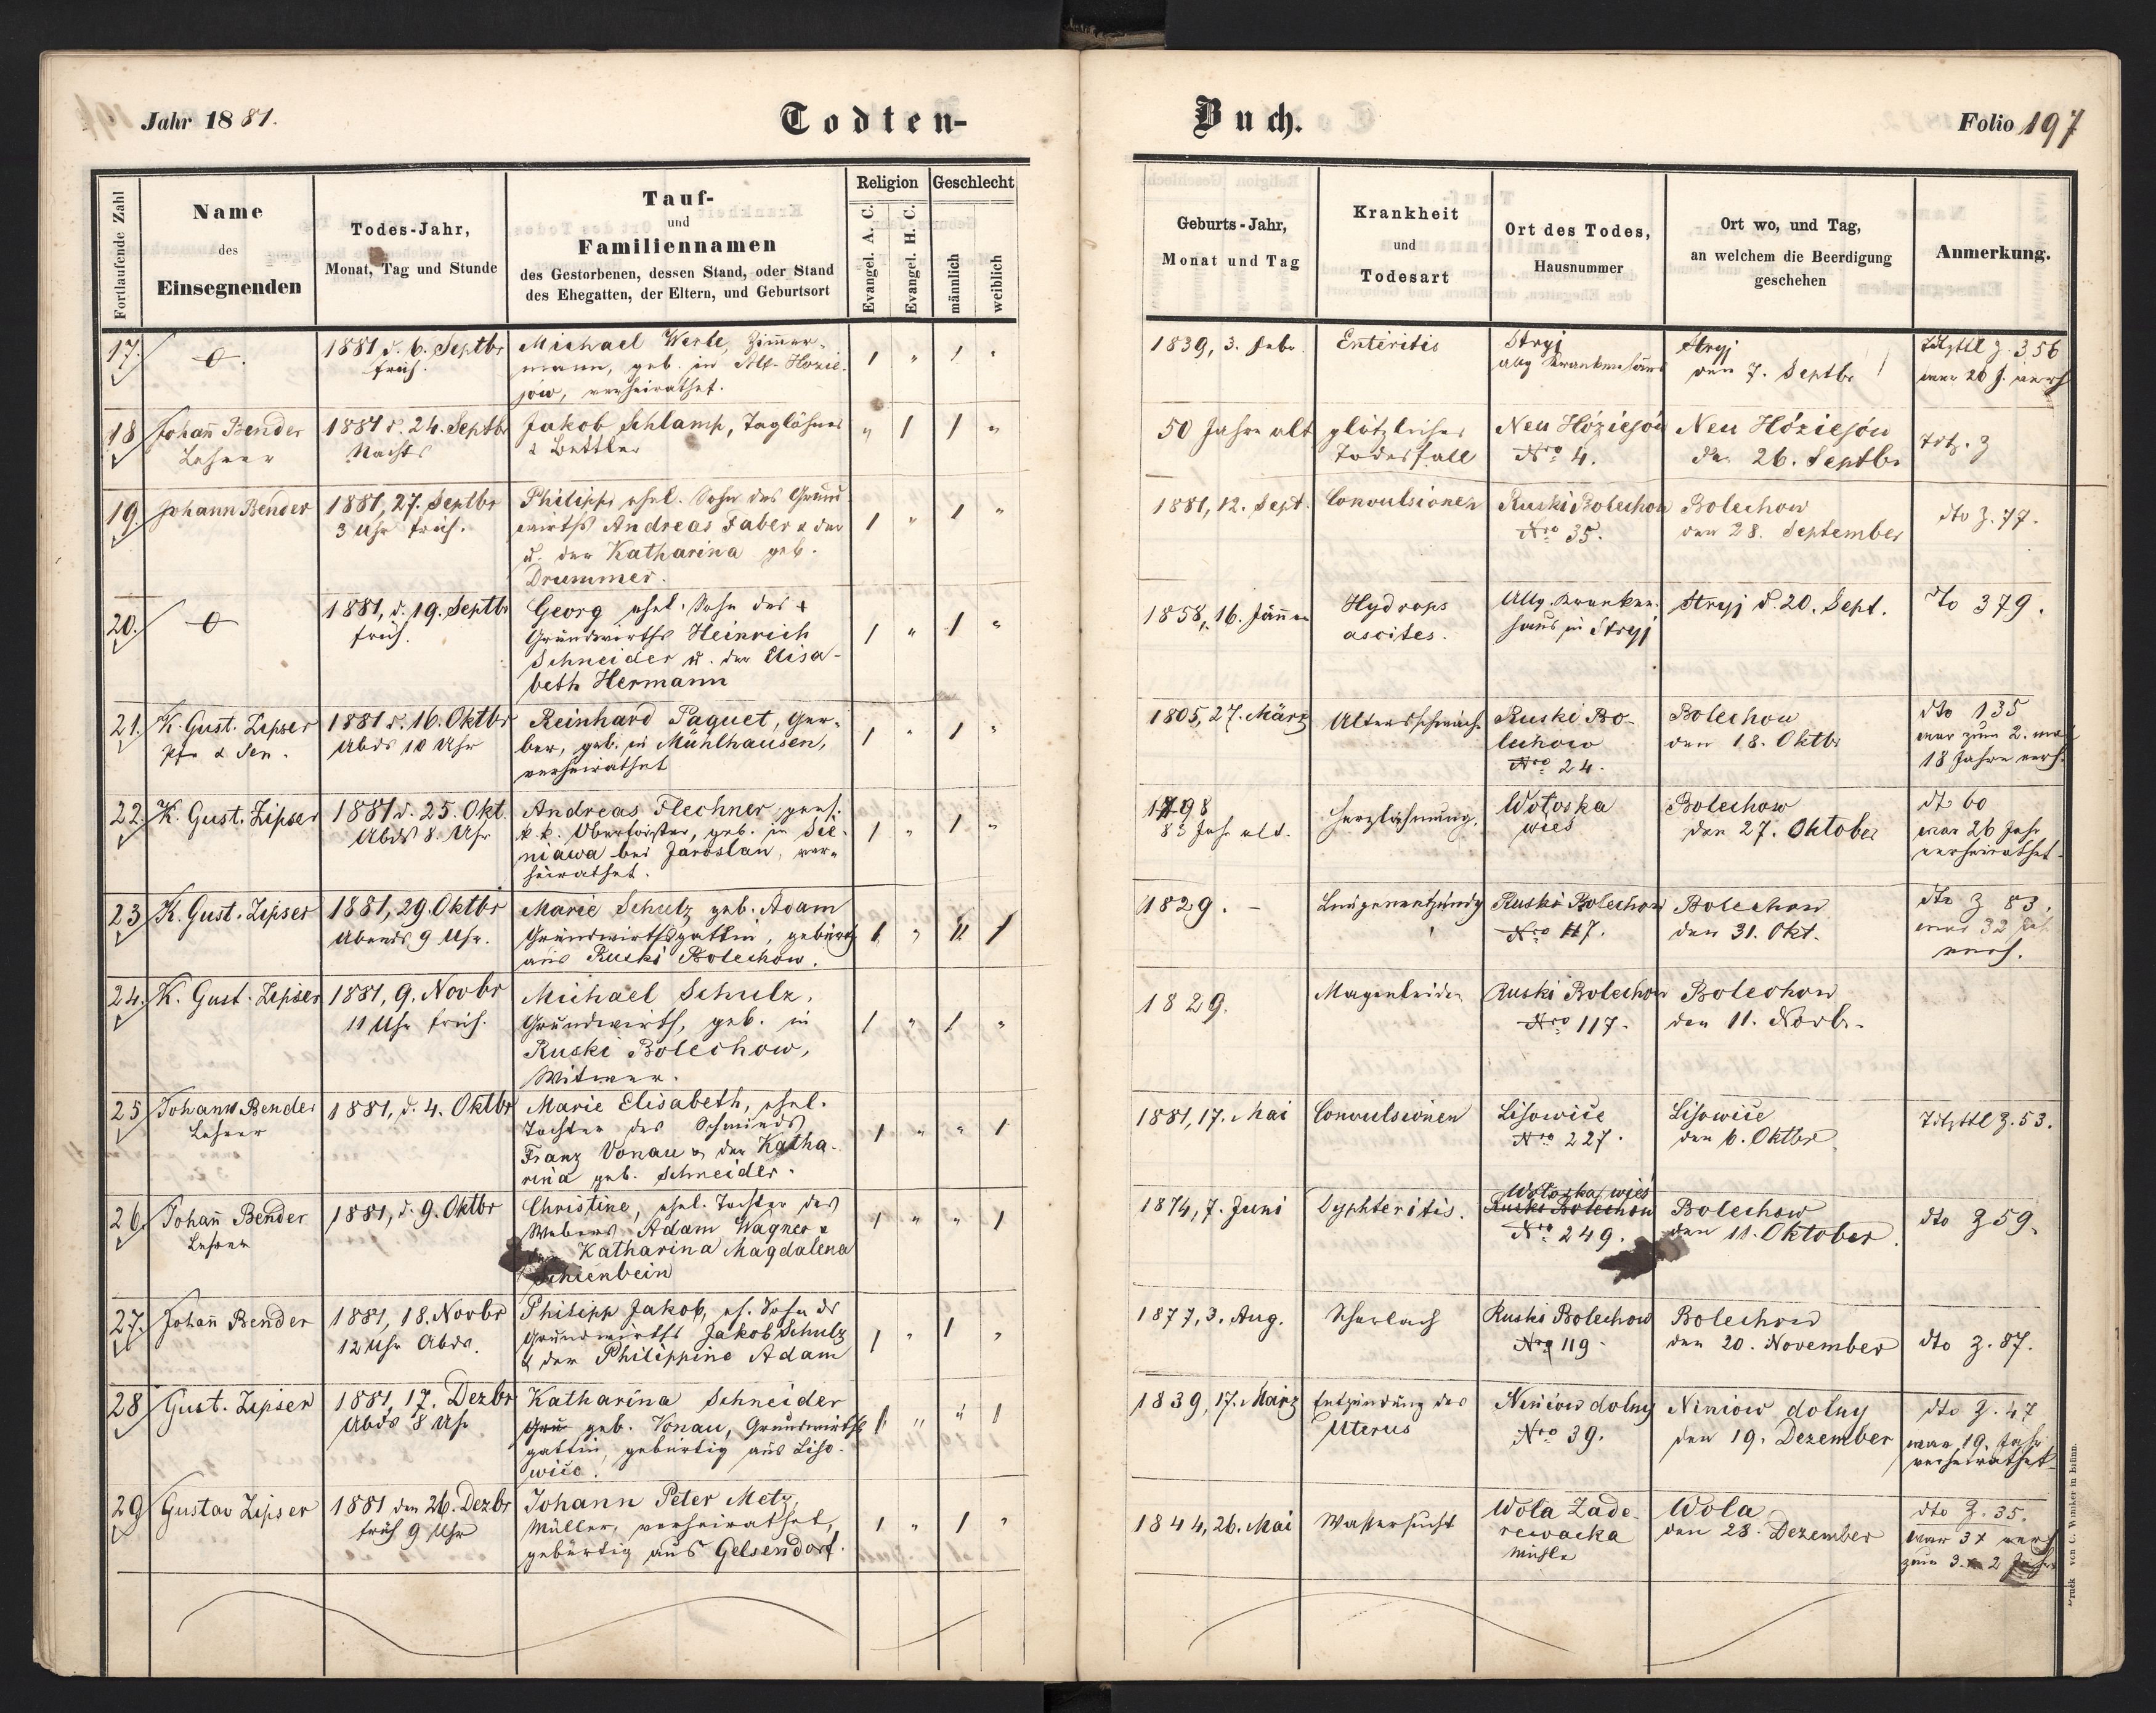 Jahr 1881.
Todten-
Buch.
Folio 197
Fortlaufende Zahl
Name
des
Einsegnenden
Todes-Jahr,
Monat, Tag und Stunde
Tauf-
und
Familiennamen
des Gestorbenen, dessen Stand, oder Stand
des Ehegatten, der Eltern, und Geburtsort
Religion
Evangel. A. C.
Evangel. H. C.
Geschlecht
männlich
weiblich
Geburts-Jahr,
Monat und Tag
Krankheit
und
Todesart
Ort des Todes,
Hausnummer
Ort wo, und Tag,
an welchem die Beerdigung
geschehen
Anmerkung.
17.
1881 d. 6. Septbr
früh.
Michael Werle, Zimer-
mann, geb. in Alt-Hozie-
jów, verheirathet.
1 " 1 "
1839, 3. Febr.
Enteritis
Stryj
allg Krankenhaus
Stryj
den 7. Septbr
Z. 356
war 20 J. verh
18
Johañ Bender
Lehrer
1881 d. 24. Septbr
Nachts
Jakob Schlamp, Taglöhner
& Bettler
" 1 1 "
50 Jahre alt
plötzlicher
Todesfall
Neu Hóziejów
Nro 4.
Neu Hóziejów
den 26. Septbr
19.
Johann Bender
1881, 27. Septbr
3 Uhr früh.
Philipp, ehel. Sohn des Grund-
wirths Andreas Faber & der
u. der Katharina geb.
Drummer.
1 " 1 "
1881, 12. Sept.
Convulsionen
Ruski Bolechow
Nro 35.
Bolechow
den 28. September
dto Z. 77.
20.
1881, d. 19. Septbr
früh.
Georg ehel. Sohn des +
Grundwirths Heinrich
Schneider u. der Elisa-
beth Hermann
1 " 1 "
1858, 16. Jäner
Hydrops
ascites.
Allg. Kranken-
haus in Stryj
Stryj d. 20. Sept.
dto 379.
21.
K. Gust. Zipser
Pfr & Sen.
1881 d. 16. Oktbr
Abds 10 Uhr
Reinhard Paquet, Ger-
ber, geb. in Mühlhausen,
verheirathet
1 " 1 "
1805, 27. März
Altersschwäche
Ruski Bo-
lechow
Nro 24.
Bolechow
den 18. Oktbr
dto 135
war zum 2. mal
18 Jahre verh.
22.
K. Gust. Zipser
1881 d. 25. Okt.
Abds 8 Uhr
Andreas Flechner, pens.
k. k. Oberförster, geb. in Sie-
niawa bei Jaroslau, ver-
heirathet.
1 " 1 "
1798
83 Jahr alt.
Herzlähmung.
Wotoska
wieś
Bolechow
den 27. Oktober
dto 60
war 26 Jahr
verheirathet.
23
K. Gust. Zipser
1881, 29. Oktbr
Abends 9 Uhr.
Marie Schulz geb. Adam
Grundwirthsgattin, gebürtig
aus Ruski Bolechow.
1 " " 1
1829. –
Lungenentzündg
Ruski Bolechow
Nro 117.
Bolechow
den 31. Okt.
dto Z 83.
war 32 Jah
verh.
24.
K. Gust. Zipser
1881, 9. Novbr
11 Uhr früh.
Michael Schulz,
Grundwirth, geb. in
Ruski Bolechow,
Witwer.
1 " 1 "
1829.
Magenleiden
Ruski Bolechow
Nro 117.
Bolechow
den 11. Novbr.
25
Johann Bender
Lehrer
1881, d. 4. Oktbr
Marie Elisabeth, ehel.
Tochter des Schmieds
Franz Vonau & der Katha-
rina geb. Schneider.
1 " " 1
1881, 17. Mai
Convulsionen
Lisowice
Nro 227.
Lisowice
den 6. Oktbr
Z. 53.
26.
Johañ Bender
Lehrer
1881, d. 9. Oktbr
Christine, ehel. Tochter des
Webers Adam Wagner &
der Katharina Magdalena
Schienbein
1 " " 1
1874, 7. Juni
Dyphteritis.
Wotoska wieś
Ruski Bolechow
Nro 249.
Bolechow
den 11. Oktober
dto Z 59.
27.
Johañ Bender
1881, 18. Novbr
12 Uhr Abds.
Philipp Jakob, eh. Sohn ds
Grundwirths Jakob Schulz
& der Philippine Adam
1 " 1 "
1877, 3. Aug.
Scharlach
Ruski Bolechow
Nro 119.
Bolechow
den 20. November
dto Z. 87.
28
Gust. Zipser
1881, 17. Dezbr
Abds 8 Uhr
Katharina Schneider
Gru geb. Vonau, Grundwirths
gattin, gebürtig aus Liso-
wice.
1 " " 1
1839, 17. März
Entzündung des
Uterus
Niniow dolny
Nro 39.
Niniow dolny
den 19. Dezember
dto Z. 47
war 19. Jahr
verheirathet
29
Gustav Zipser
1881 den 26. Dezbr
früh 9 Uhr
Johann Peter Metz,
Müller, verheirathet,
gebürtig aus Gelsendorf.
1 " 1 "
1844, 26. Mai
Wassersucht
Wola Zade-
rewacka
Mühle
Wola
den 28. Dezember
dto Z. 35.
war 3x verh
zum 3. 2 Jahr
Druck von C. Winiker in Brünn.